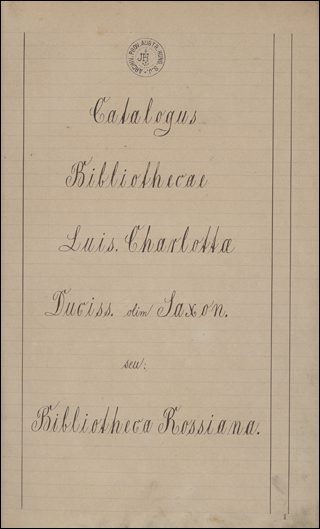 ARCHIV. PROV. AUSTR. HUNG. S.J.
JHS
Catalogus
Bibliothecae
Luis. Charlottæ
Duciss. olim Saxon.
seu:
Bibliotheca Rossiana.
1